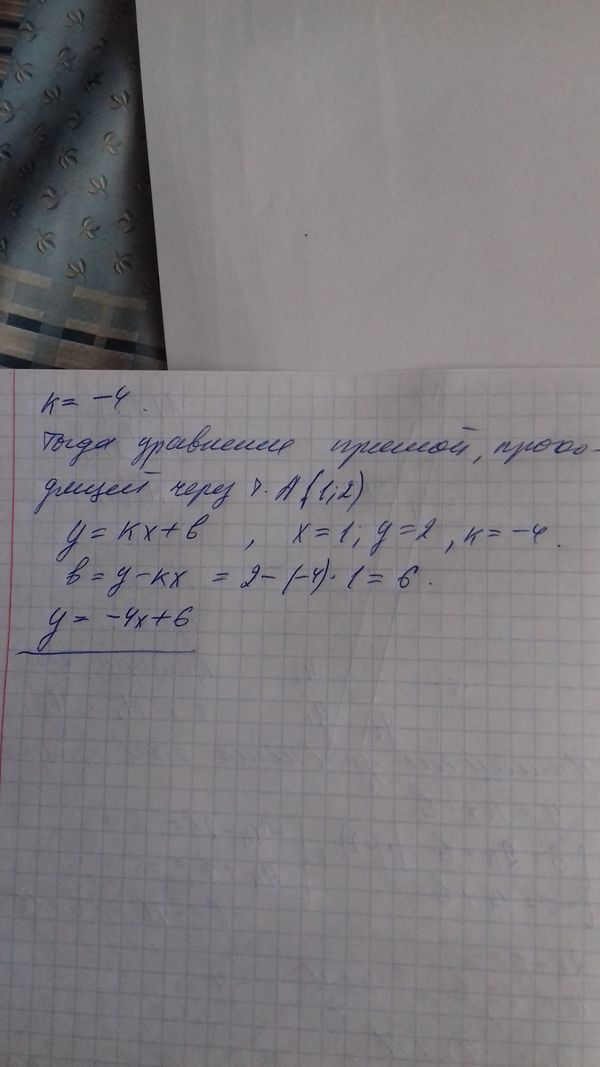 k = -4.
Тогда уравнение прямой, прохо-
дящей через т. А (1;2)
y = kx + b , x = 1; y = 2, k = -4.
b = y - kx = 2 - (-4) · 1 = 6.
y = -4x + 6